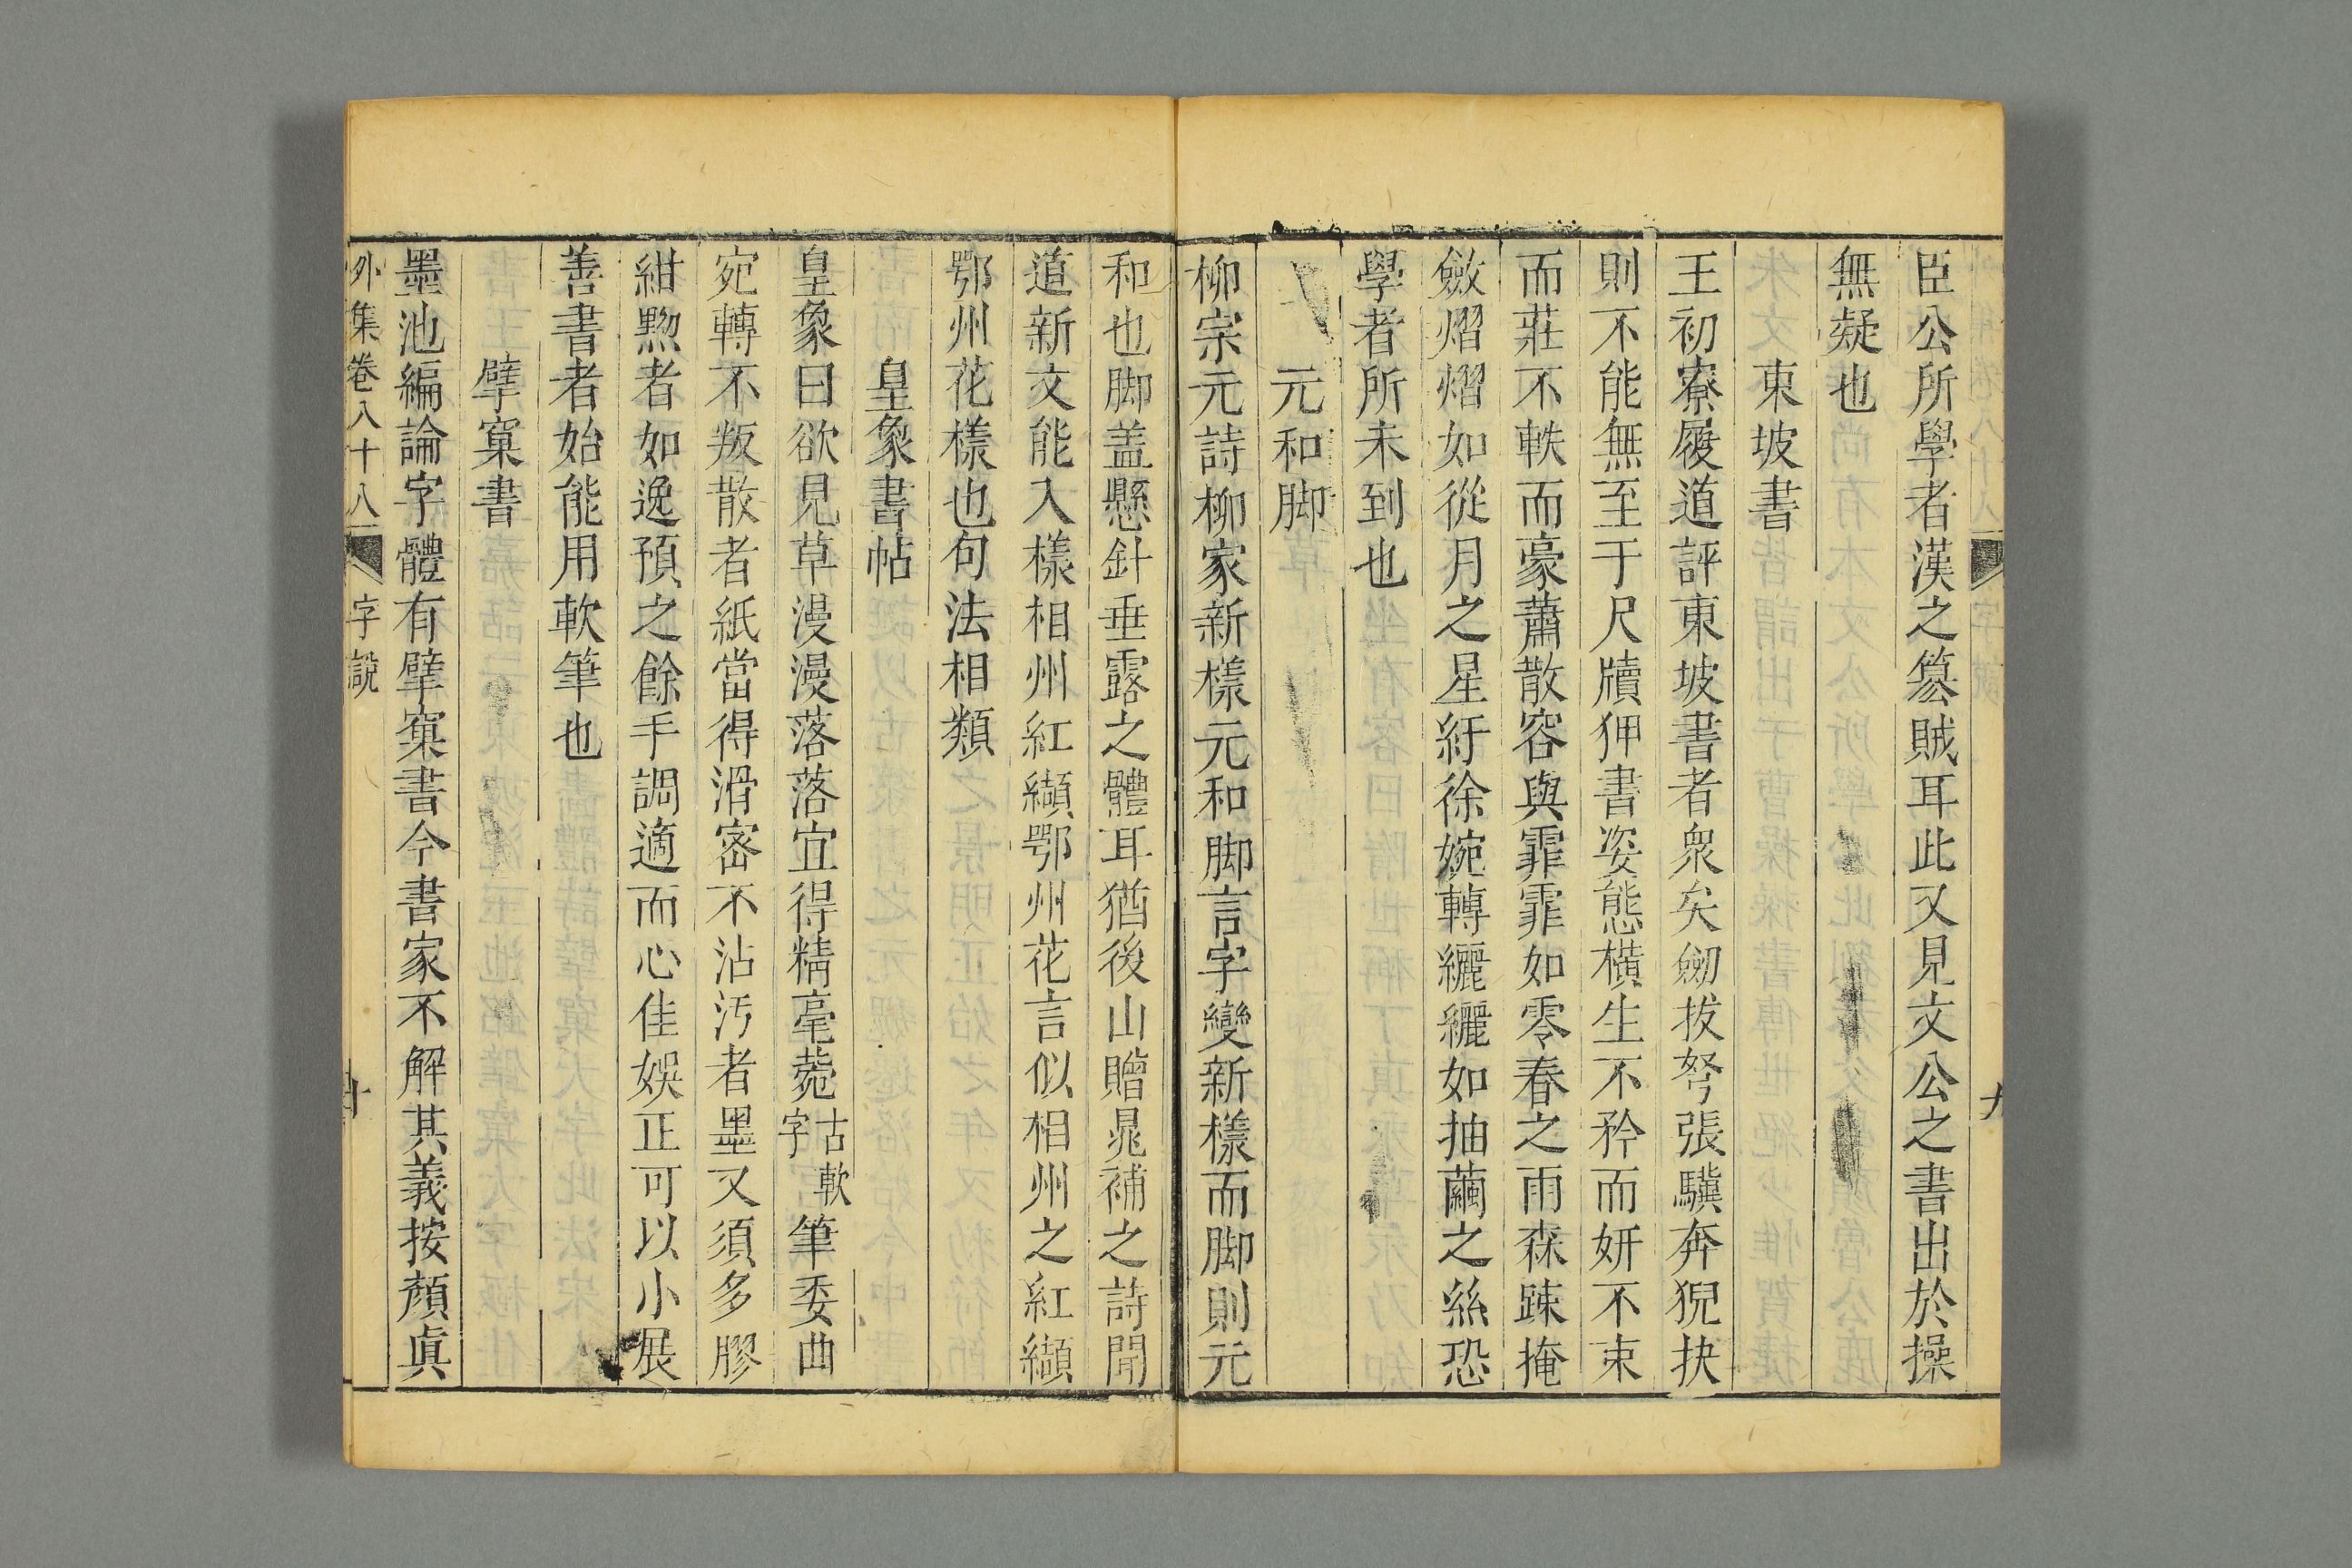 臣公所學者漢之篡賊耳此又見文公之書出於操
無疑也
東坡書
王初寮履道評東坡書者衆矣劒拔弩張驥奔猊抉
則不能無至于尺牘狎書姿態橫生不矜而妍不束
而莊不軼而豪蕭散容與霏霏如零春之雨森踈掩
斂熠熠如從月之星紆徐婉轉纚纚如抽繭之絲恐
學者所未到也
元和脚
柳宗元詩柳家新樣元和脚言字變新樣而脚則元
和也脚盖懸針垂露之體耳猶後山贈晁補之詩聞
道新文能入樣相州紅纈鄂州花言似相州之紅纈
鄂州花樣也句法相類
皇象書帖
皇象曰欲見草漫漫落落宜得精毫㼌古軟字筆委曲
宛轉不叛散者紙當得滑密不沾汚者墨又須多膠
紺黝者如逸預之餘手調適而心佳娛正可以小展
善書者始能用軟筆也
擘窠書
墨池編論字體有擘窠書今書家不解其義按顏眞
外集卷八十八 字說 十